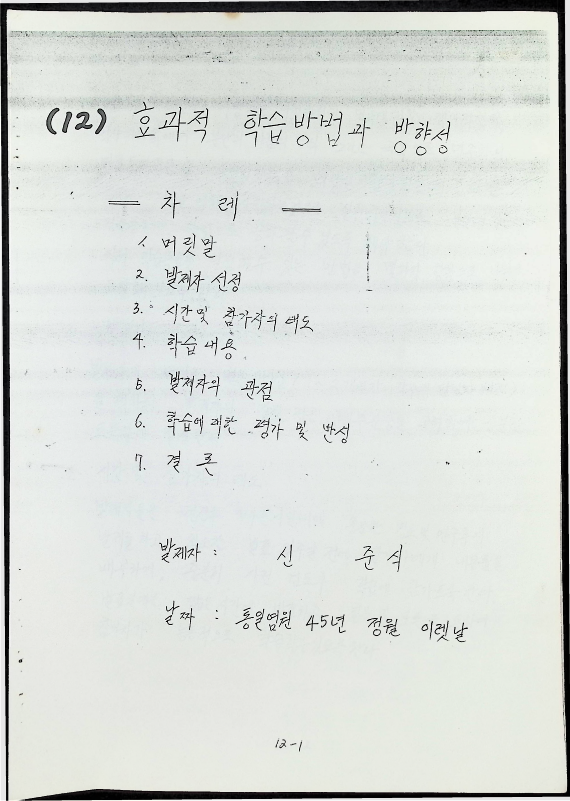 (12) 효과적 학습방법과 방향성
차 례
1. 머릿말
2. 발제자 선정
3. 시간및 참가자의 태도
4. 학습 내용
5. 발제자의 관점
6. 학습에 대한 평가 및 반성
7. 결 론
발제자 : 신 준 식
날짜 : 통일염원 45년 정월 이렛날
12-1